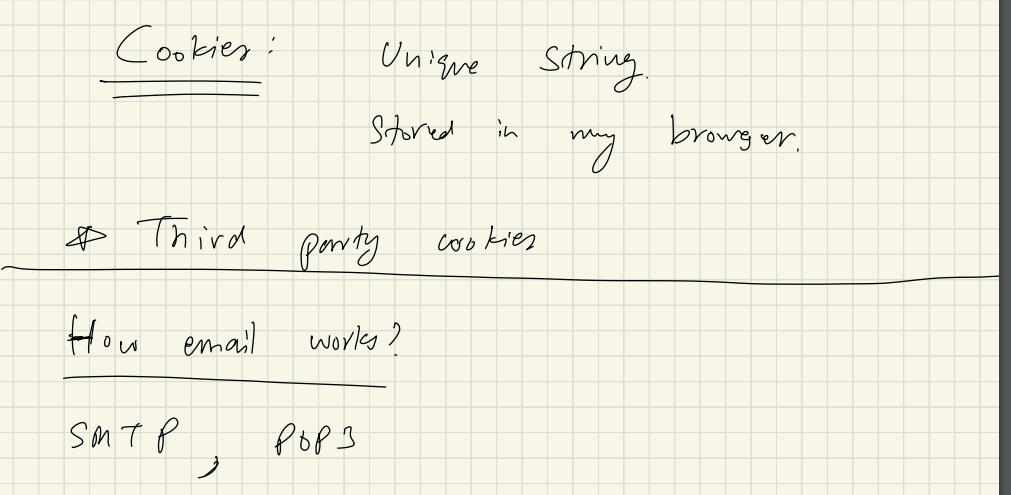 Cookies: Unique String.
Stored in my browser.
☆ Third party cookies
How email works?
SMTP, POP3